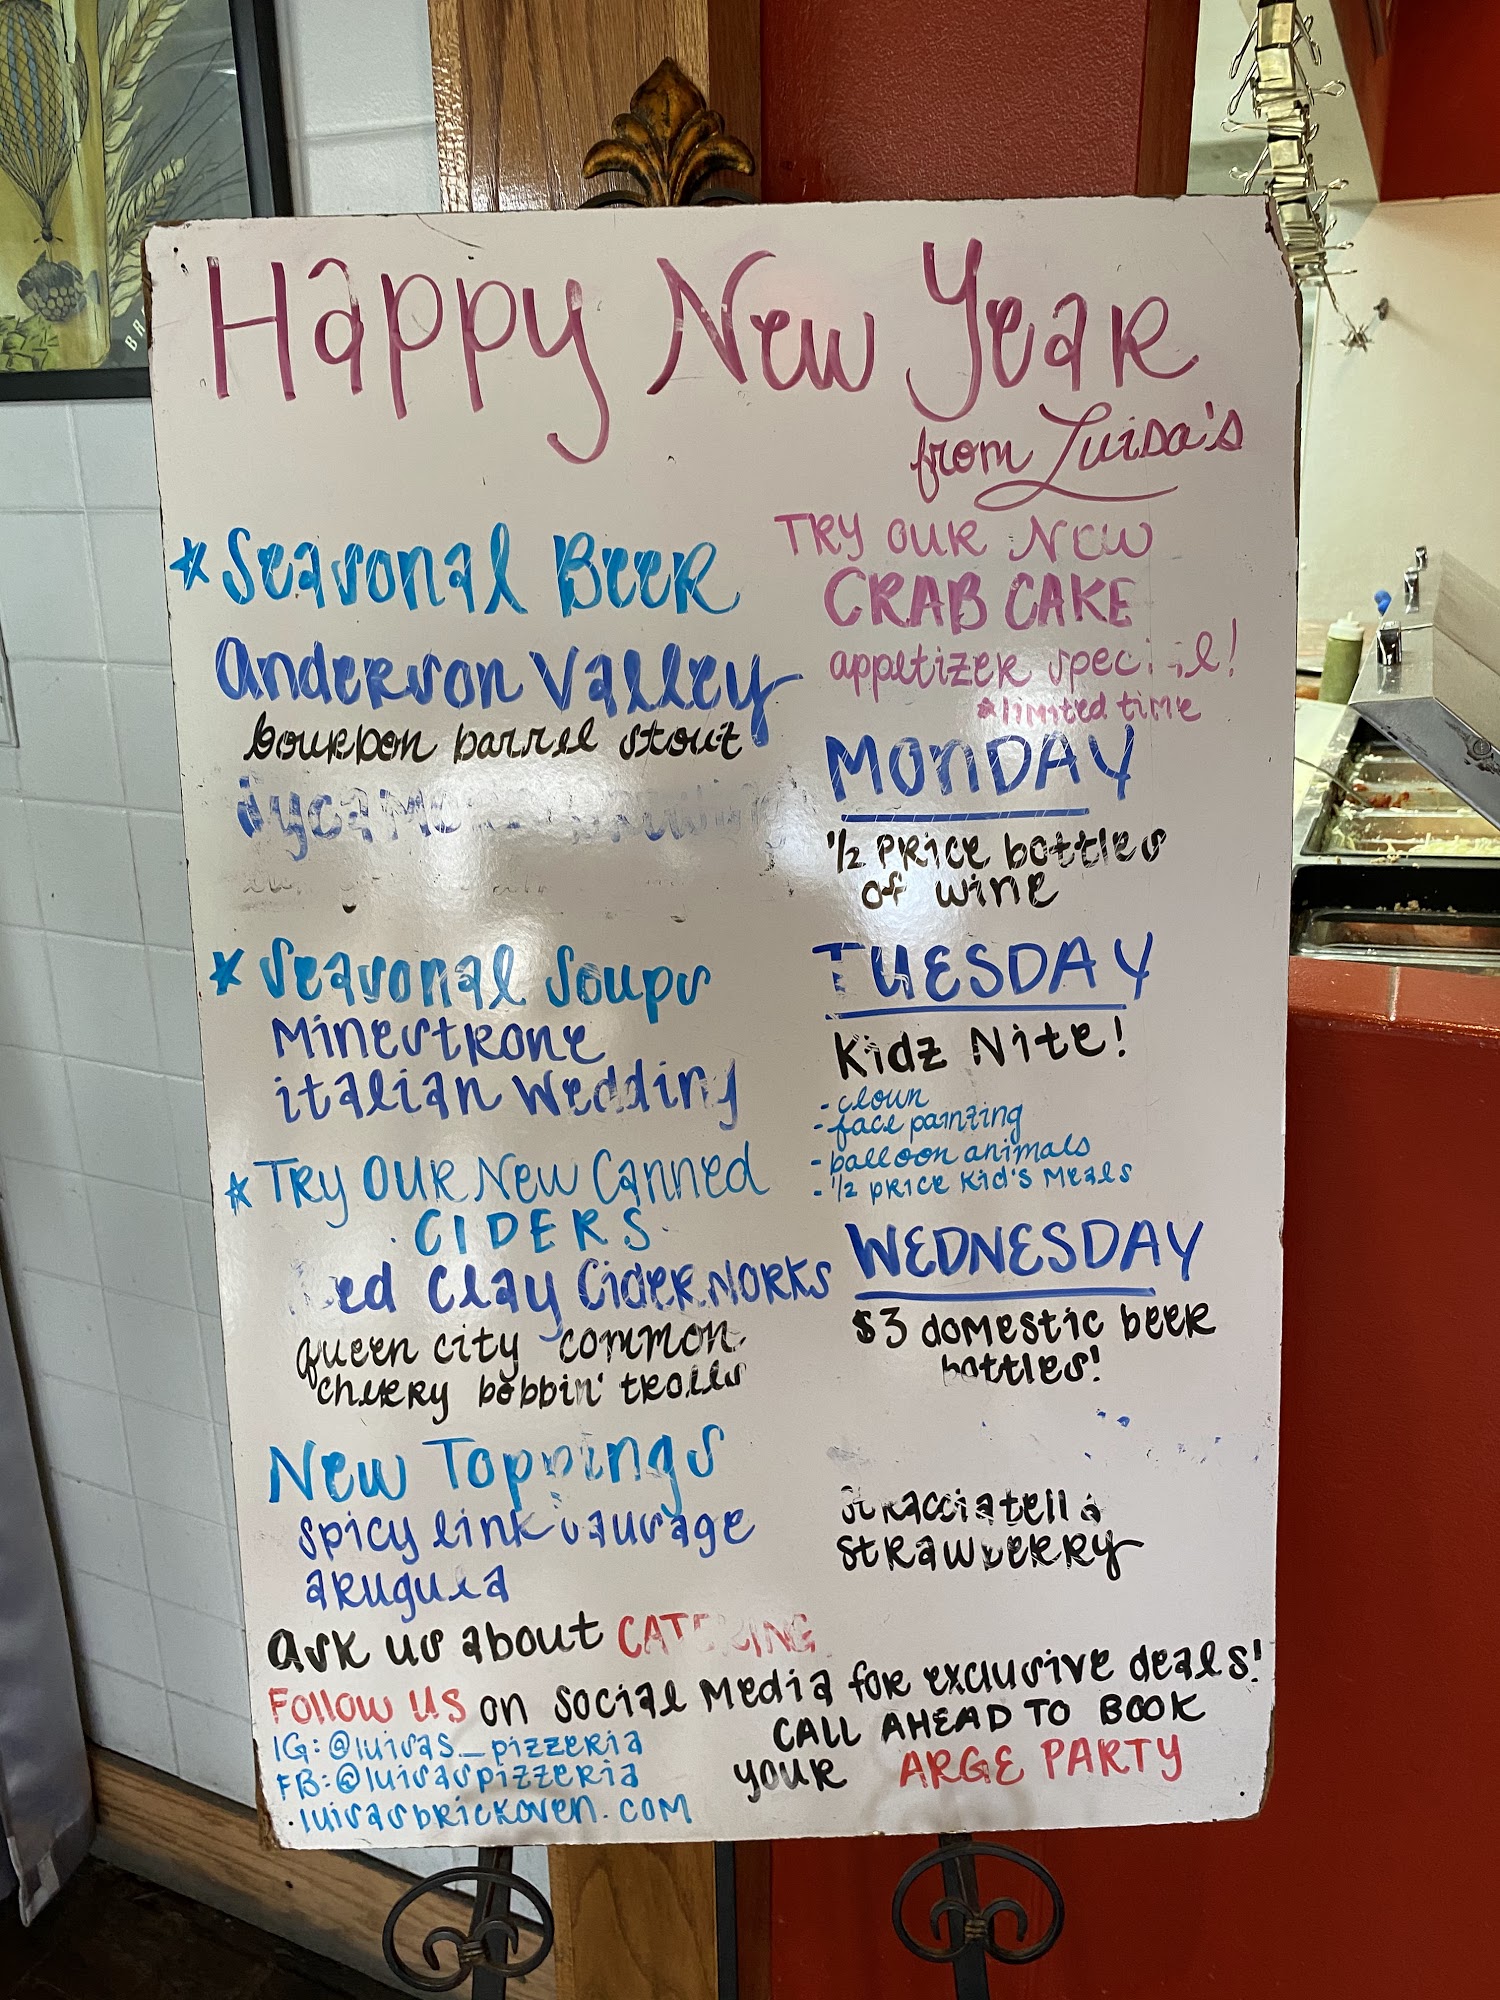 Happy New Year
from Luisa's
* Seasonal Beer
Anderson Valley
bourbon barrel stout
* Seasonal Soups
Minestrone
italian Wedding
* Try our New Canned
CIDERS
Red Clay CiderWorks
queen city common
cherry bobbin' trolls
New Toppings
spicy link sausage
arugula
Try our New
CRAB CAKE
appetizer special!
*limited time
MONDAY
1/2 price bottles
of wine
TUESDAY
Kidz Nite!
- clown
- face painting
- balloon animals
- 1/2 price Kid's Meals
WEDNESDAY
$3 domestic beer
bottles!
Stracciatella
strawberry
ask us about CATERING
Follow us on social media for exclusive deals!
IG: @luisas_pizzeria
FB: @luisaspizzeria
.luisasbrickoven.com
CALL AHEAD TO BOOK
your ARGE PARTY